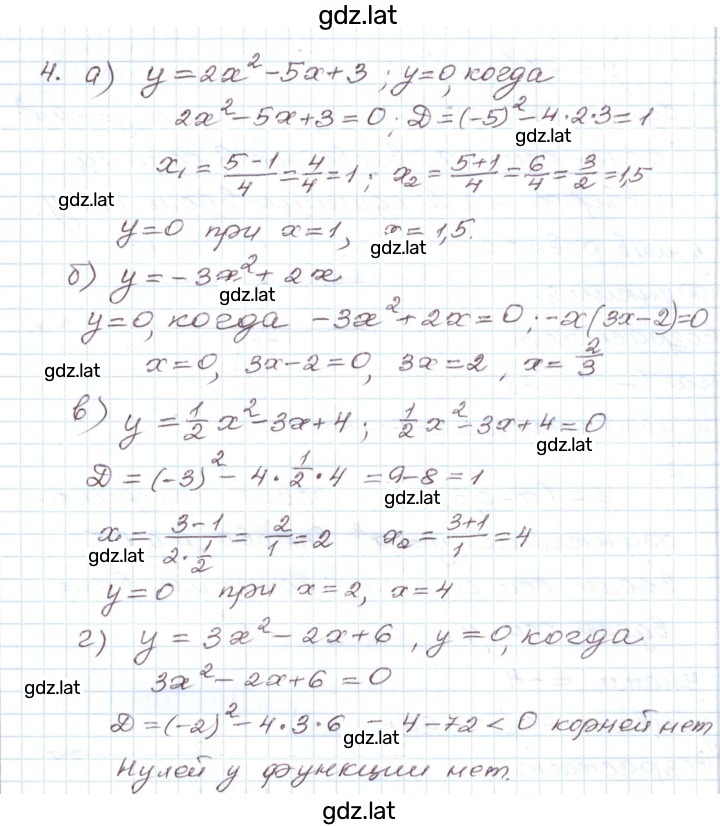 gdz.lat
4. а) y = 2x² - 5x + 3 ; y = 0, когда
2x² - 5x + 3 = 0 ; Д = (-5)² - 4·2·3 = 1
gdz.lat
x₁ = (5-1)/4 = 4/4 = 1 ; x₂ = (5+1)/4 = 6/4 = 3/2 = 1,5
gdz.lat
y = 0 при x = 1, x = 1,5.
gdz.lat
б) y = -3x² + 2x
gdz.lat
y = 0, когда -3x² + 2x = 0 ; -x(3x-2) = 0
gdz.lat
x = 0, 3x - 2 = 0, 3x = 2, x = 2/3
в) y = 1/2 x² - 3x + 4 ; 1/2 x² - 3x + 4 = 0
gdz.lat
Д = (-3)² - 4 · 1/2 · 4 = 9 - 8 = 1
gdz.lat
x₁ = (3-1)/(2·1/2) = 2/1 = 2 x₂ = (3+1)/1 = 4
gdz.lat
y = 0 при x = 2, x = 4
г) y = 3x² - 2x + 6 , y = 0, когда
3x² - 2x + 6 = 0
gdz.lat
Д = (-2)² - 4·3·6 = 4 - 72 < 0 корней нет
gdz.lat
Нулей у функции нет.
gdz.lat